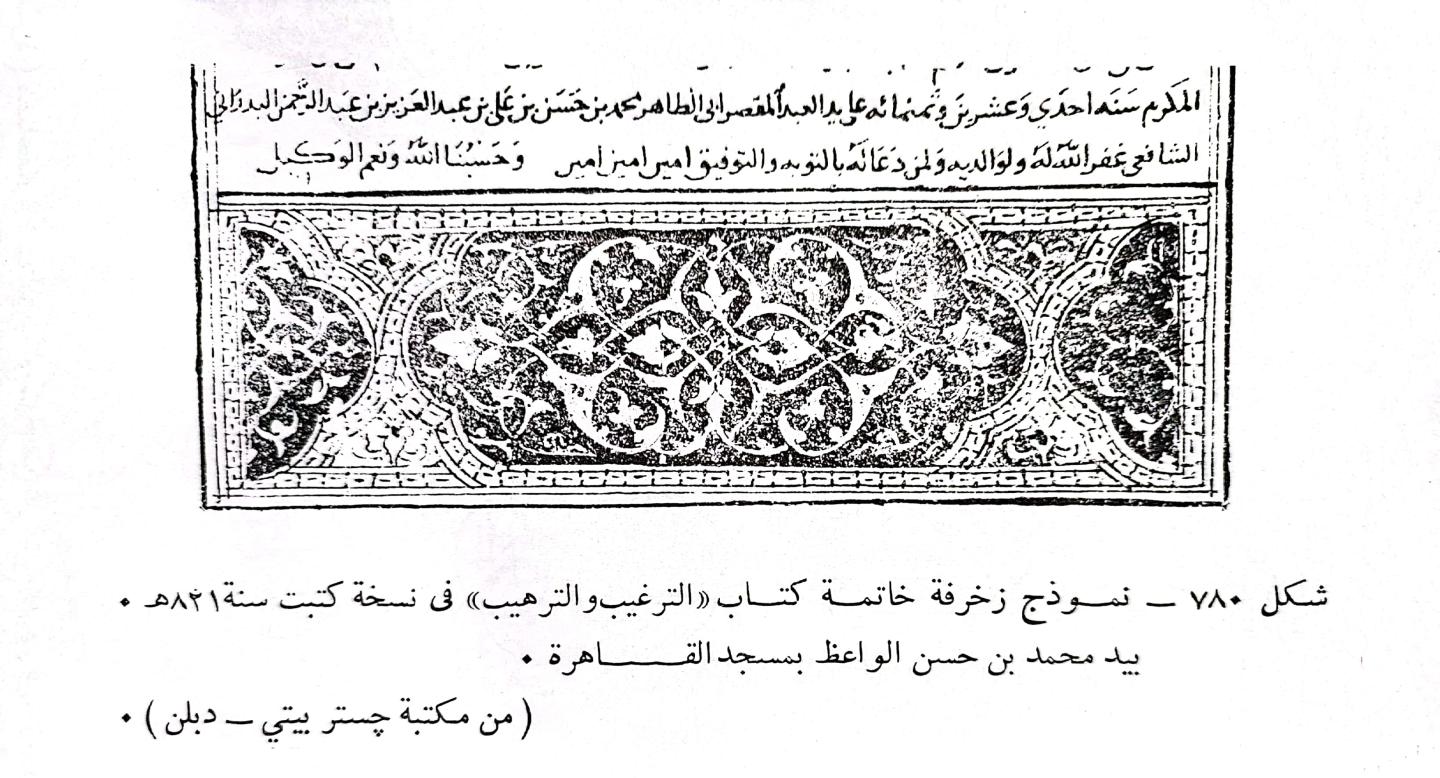 المكرم سنه احدي وعشرين وثمنمائه على يد العبد المقصر ابى الطاهر محمد بن حسن بن على بن عبد العزيز بن عبد الرحمن البدراني
الشافعى غفر الله له ولوالديه ولمن دعا له بالتوبه والتوفيق امين امين امين وحسبنا الله ونعم الوكيل
شكل ٧٨٠ ــ نموذج زخرفة خاتمة كتاب «الترغيب والترهيب» فى نسخة كتبت سنة ٨٢١هـ ٠
بيد محمد بن حسن الواعظ بمسجد القاهرة ٠
( من مكتبة چستر بيتي ــ دبلن ) ٠